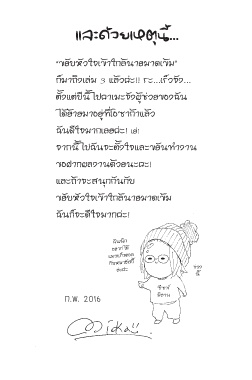 และด้วยเหตุนี้...
"ขยับหัวใจเข้าใกล้นายมาดเข้ม"
ก็มาถึงเล่ม 3 แล้วค่ะ!! ระ...เร็วจัง...
ตั้งแต่ปีนี้ไปฉาเมะจังผู้ช่วยของฉัน
ได้ย้ายมาอยู่ที่โอซาก้าแล้ว
ฉันดีใจมากเลยค่ะ! เย่
จากนี้ไปฉันจะตั้งใจและขยันทำงาน
ขอฝากผลงานด้วยนะคะ!
และถ้าจะสนุกกันกับ
ขยับหัวใจเข้าใกล้นายมาดเข้ม
ฉันก็จะดีใจมากค่ะ!
ก.พ. 2016